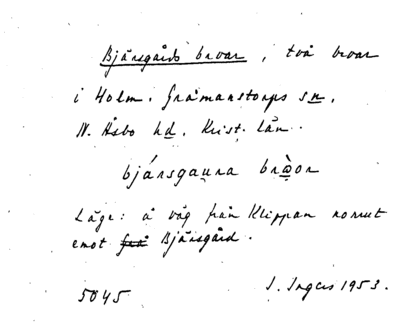 Bjärsgårds broar, två broar
i Holm. Gråmanstorps sn,
N. Åsbo hd. Krist. län.
bjársgaụna brạ̀or
Läge: å väg från Klippan norrut
emot Grå Bjärsgård.
5045 I. Ingers 1953.